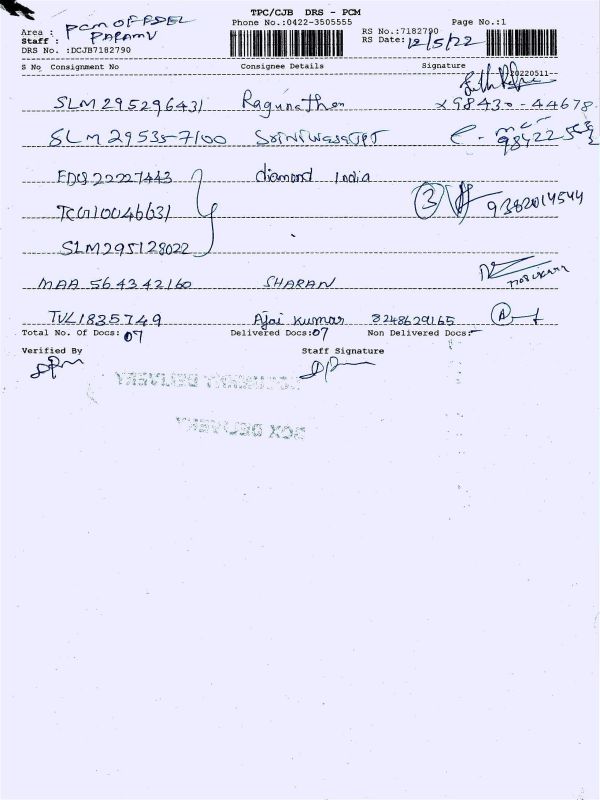 TPC/CJB DRS - PCM
Phone No.:0422-3505555 Page No.:1
Area : PCM OFFDEL RS No.:7182790
Staff : PARAMU RS Date: 12/5/22
DRS No. :DCJB7182790
S No Consignment No Consignee Details Signature
20220511
SLM295296431 Ragunathan 98430-44678
SLM295357100
FDQ22227443 diamond India
TCG110046631 3 9382014544
SLM295128022
MAA 564342160 SHARAN
TVL1835749 Ajai Kumar 8248629165 A
Total No. Of Docs: 07 Delivered Docs:07 Non Delivered Docs:-
Verified By Staff Signature
DOCUMENT DELIVERY
BOX DELIVERY